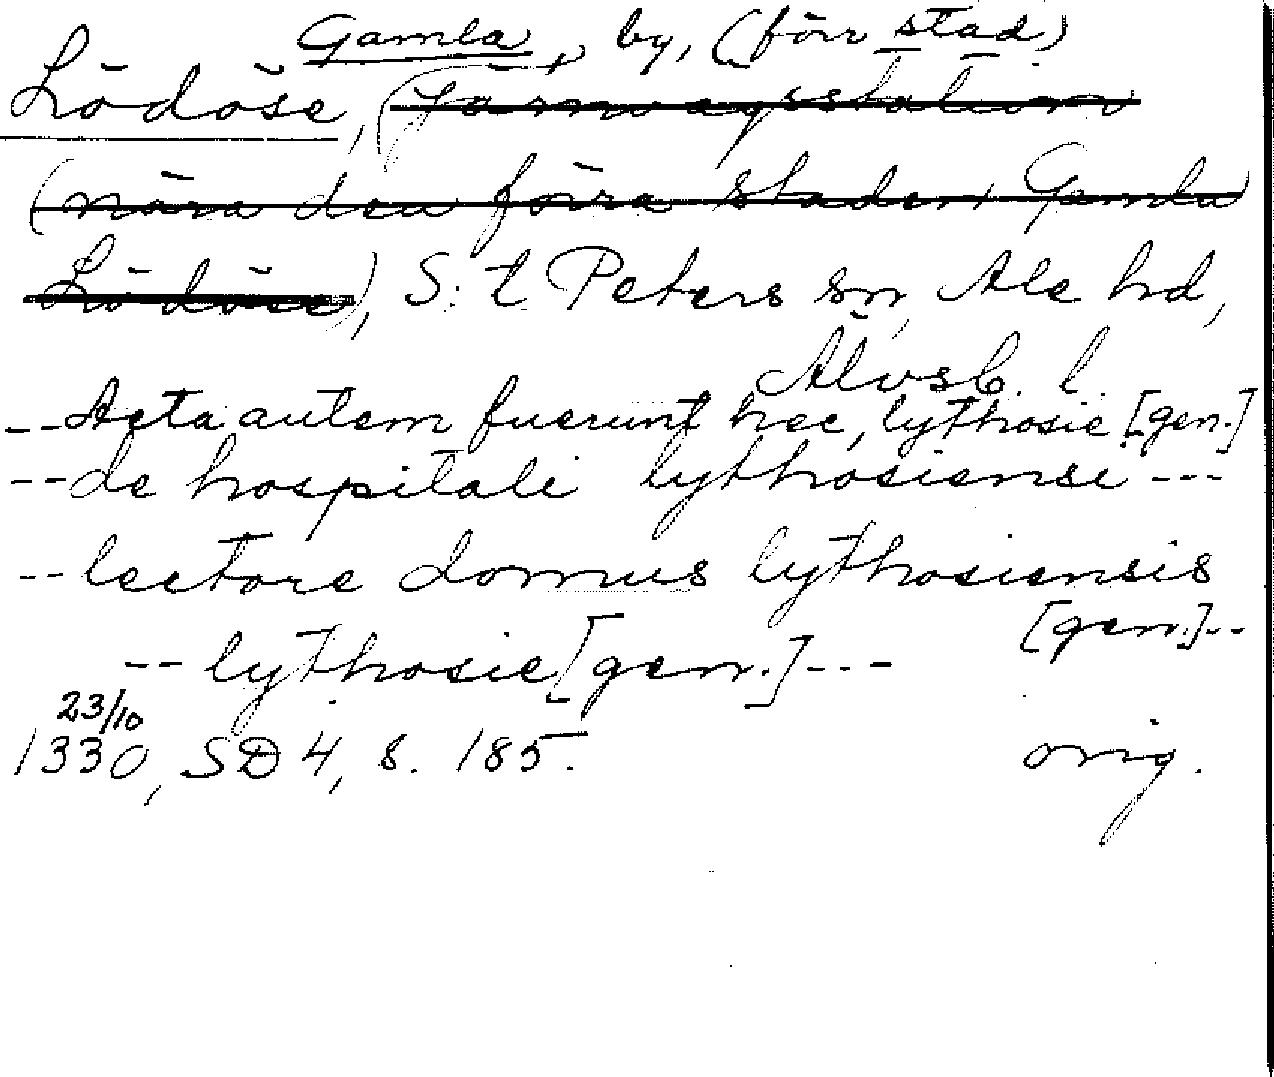 Gamla, by, (förr stad)
Lödöse, (Järnvägsstation
(nära den förra staden Gamla
Lödöse), S:t Peters sn, Ale hd,
Älvsb. l.
--Acta autem fuerunt hec, lythosie [gen.]
--de hospitali lythosiensi ---
--lectore domus lythosiensis
[gen.]--
--lythosie [gen.]---
23/10
1330, SD 4, s. 185. orig.